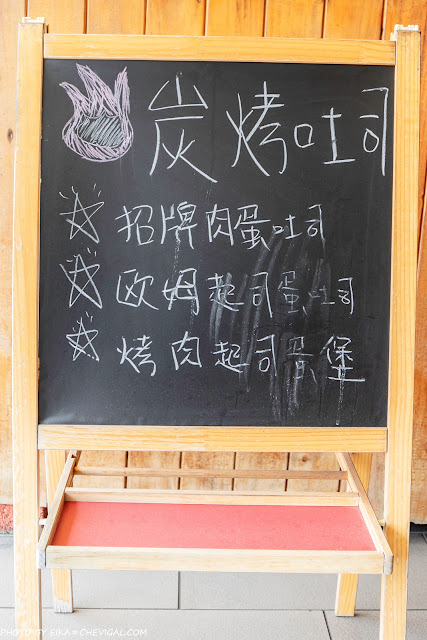 炭烤吐司
招牌肉蛋吐司
欧姆起司蛋吐司
烤肉起司蛋堡
PHOTO BY EIKA@CHEVIGAL.COM